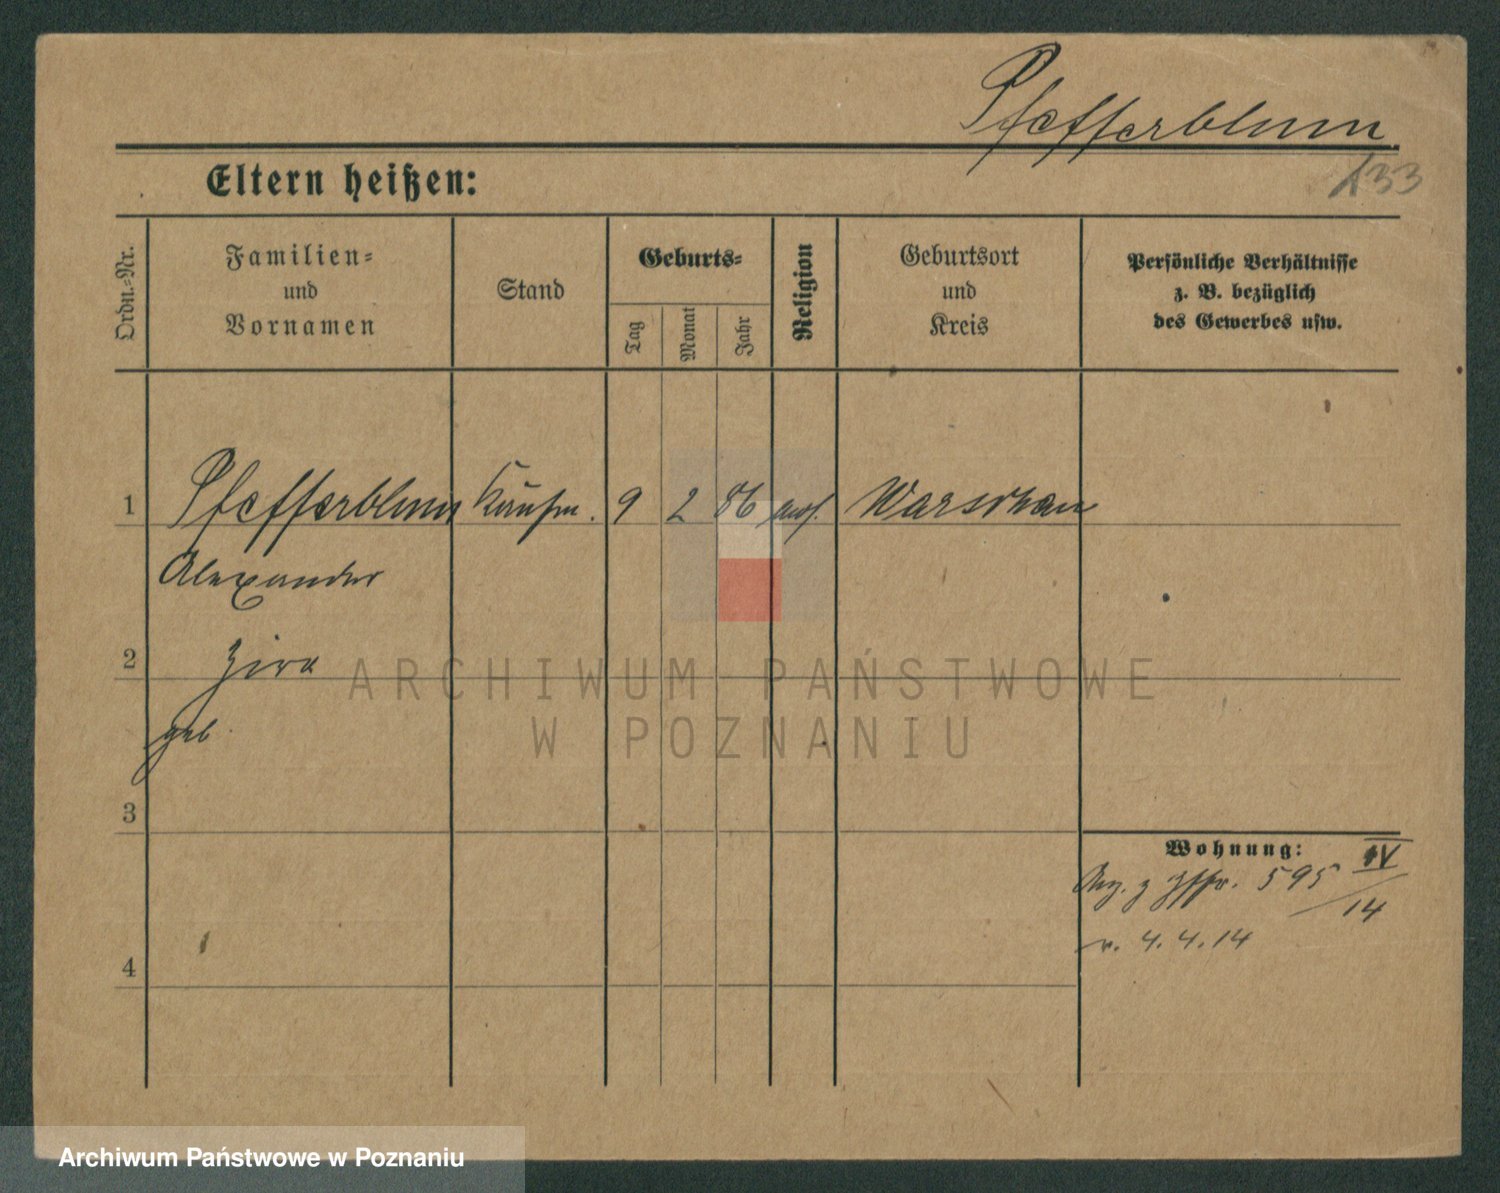 Pfefferblum
133
Eltern heißen:
Ordn.-Nr.
Familien-
und
Vornamen
Stand
Geburts-
Tag
Monat
Jahr
Religion
Geburtsort
und
Kreis
Persönliche Verhältnisse
z. B. bezüglich
des Gewerbes usw.
1 Pfefferblum Kaufm. 9 2 86 mos. Warschau
Alexander
2
geb
3
Wohnung:
595 IV/14
v. 4.4.14
4
ARCHIWUM PAŃSTWOWE
W POZNANIU
Archiwum Państwowe w Poznaniu